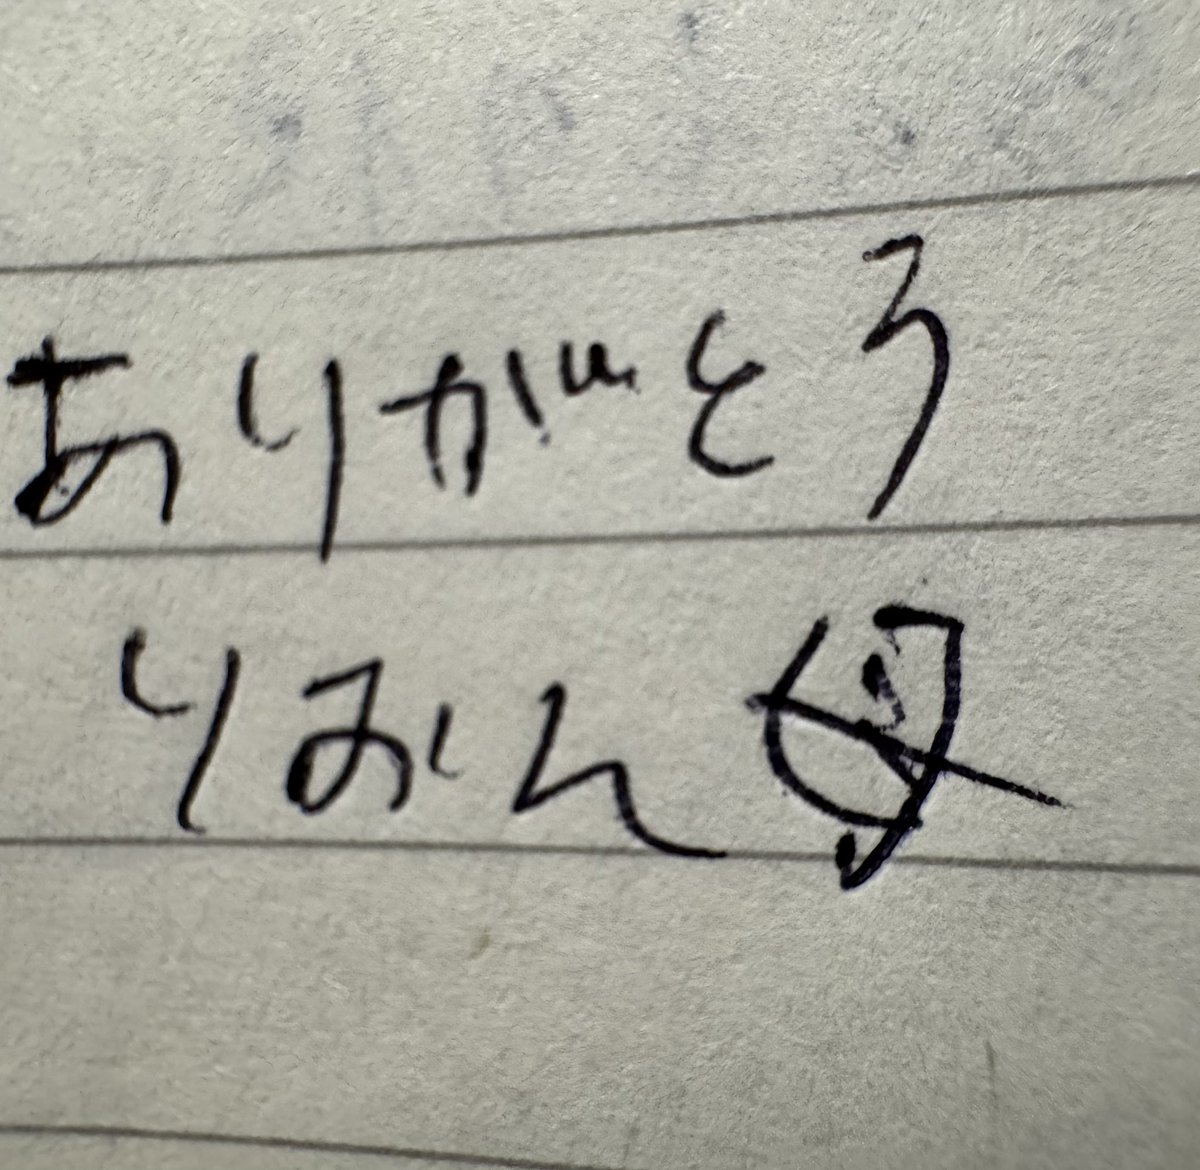 ありがとう
りおん母